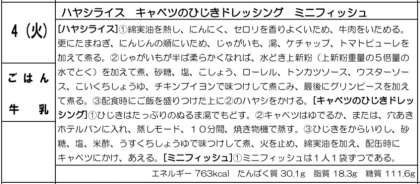 ハヤシライス　キャベツのひじきドレッシング　ミニフィッシュ
4（火）
ごはん
牛乳
[ハヤシライス]①綿実油を熱し、にんにく、セロリを香りよくいため、牛肉をいためる。
更にたまねぎ、にんじんの順にいため、じゃがいも、湯、ケチャップ、トマトピューレを
加えて煮る。②じゃがいもが半ば柔らかくなれば、水とき上新粉（上新粉重量の５倍量の
水でとく）を加えて煮、砂糖、塩、こしょう、ローレル、トンカツソース、ウスターソー
ス、こいくちしょうゆ、チキンブイヨンで味つけして煮こみ、最後にグリンピースを加え
て煮る。③配食時にご飯を盛りつけた上に②のハヤシをかける。[キャベツのひじきドレッ
シング]①ひじきはたっぷりのぬるま湯でもどす。②キャベツはゆでるか、または、穴あき
ホテルパンに入れ、蒸しモード、１０分間、焼き物機で蒸す。③ひじきをからいりし、砂
糖、塩、米酢、うすくちしょうゆで味つけして煮、火を止め、綿実油を加え、配缶時に
キャベツにかけ、あえる。[ミニフィッシュ]①ミニフィッシュは１人１袋ずつである。
エネルギー 763kcal　たんぱく質 30.1g　脂質 18.3g　糖質 111.6g